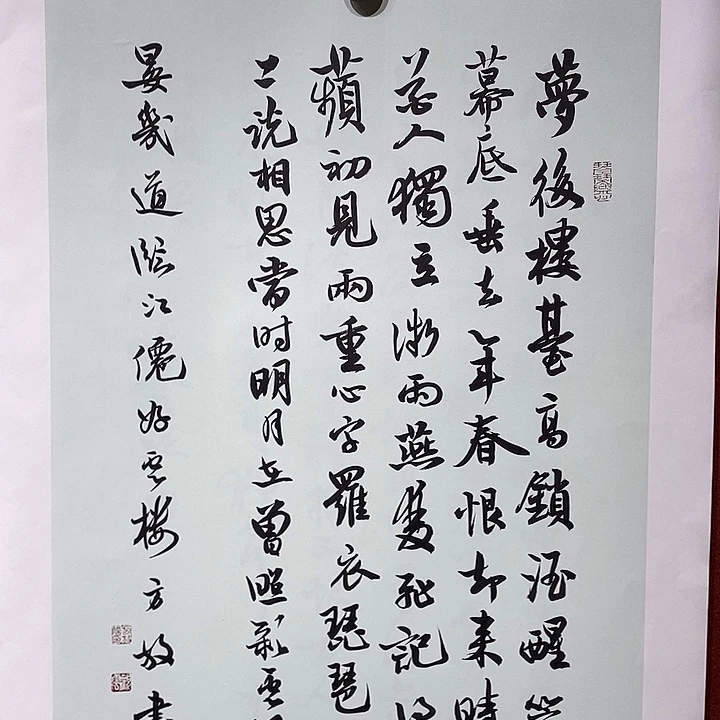 夢後樓臺高鎖酒醒
幕底垂去年春恨却来時
花人獨立微雨燕雙飛記
蘋初見兩重心字羅衣琵琶
上说相思當时明月在曾照彩雲
晏幾道臨江僊好雲楼方放書